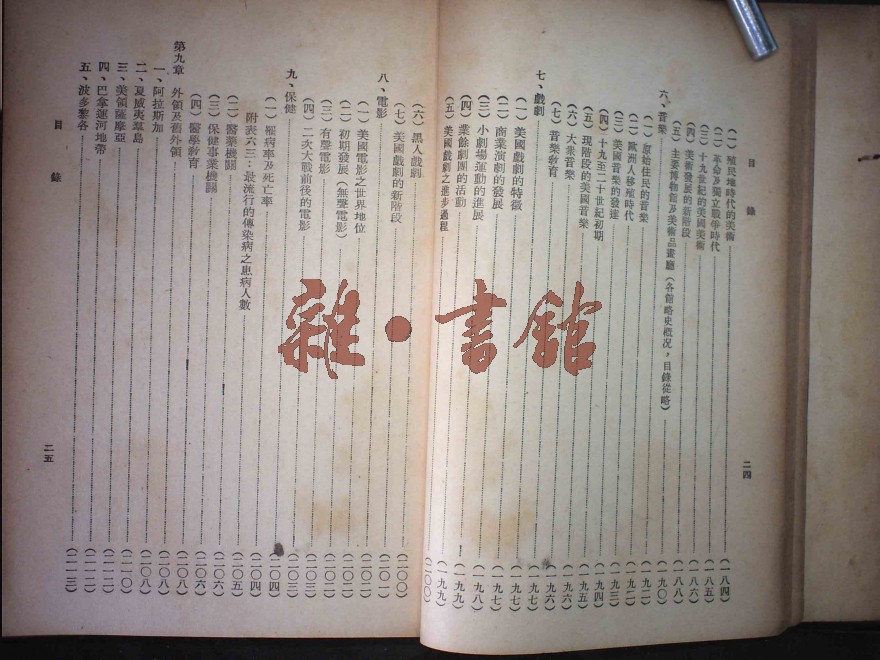 目錄
(一)殖民地時代的美術……(一八四)
(二)革命及獨立戰爭時代……(一八五)
(三)十九世紀的美國美術……(一八六)
(四)美術發展的新階段……(一八八)
(五)主要博物館及美術品畫廳(各館略史概況,目錄從略)……(一九〇)
六、音樂……(一九二)
(一)原始住民的音樂……(一九二)
(二)歐洲人移殖時代……(一九三)
(三)美國音樂的發達……(一九四)
(四)十九至二十世紀初期……(一九五)
(五)現階段的美國音樂……(一九六)
(六)大衆音樂……(一九六)
(七)音樂教育……(一九七)
七、戲劇……(一九七)
(一)美國戲劇的特徵……(一九七)
(二)商業演劇的發展……(一九八)
(三)小劇場運動的進展……(一九九)
(四)業餘劇團的活動……(一九九)
(五)美國戲劇之進步過程……(二〇〇)
二四
(六)黑人戲劇……(二〇〇)
(七)美國戲劇的新階段……(二〇一)
八、電影……(二〇二)
(一)美國電影之世界地位……(二〇二)
(二)初期發展(無聲電影)……(二〇二)
(三)有聲電影……(二〇三)
(四)二次大戰前後的電影……(二〇三)
九、保健……(二〇四)
(一)罹病率及死亡率……(二〇四)
附表六三:最流行的傳染病之患病人數……(二〇五)
(二)醫藥機關……(二〇六)
(三)保健事業機關……(二〇六)
(四)醫學教育……(二〇八)
第九章 外領及舊外領……(二〇八)
一、阿拉斯加……(二〇八)
二、夏威夷羣島……(二一〇)
三、美領薩摩亞……(二一二)
四、巴拿運河地帶……(二一二)
五、波多黎各……(二一三)
目錄
二五
雜·書館